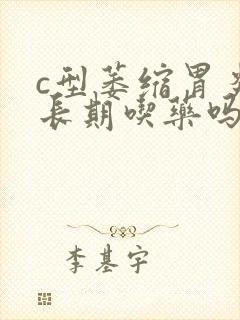 c型萎缩胃炎
长期喫药吗
李基宇